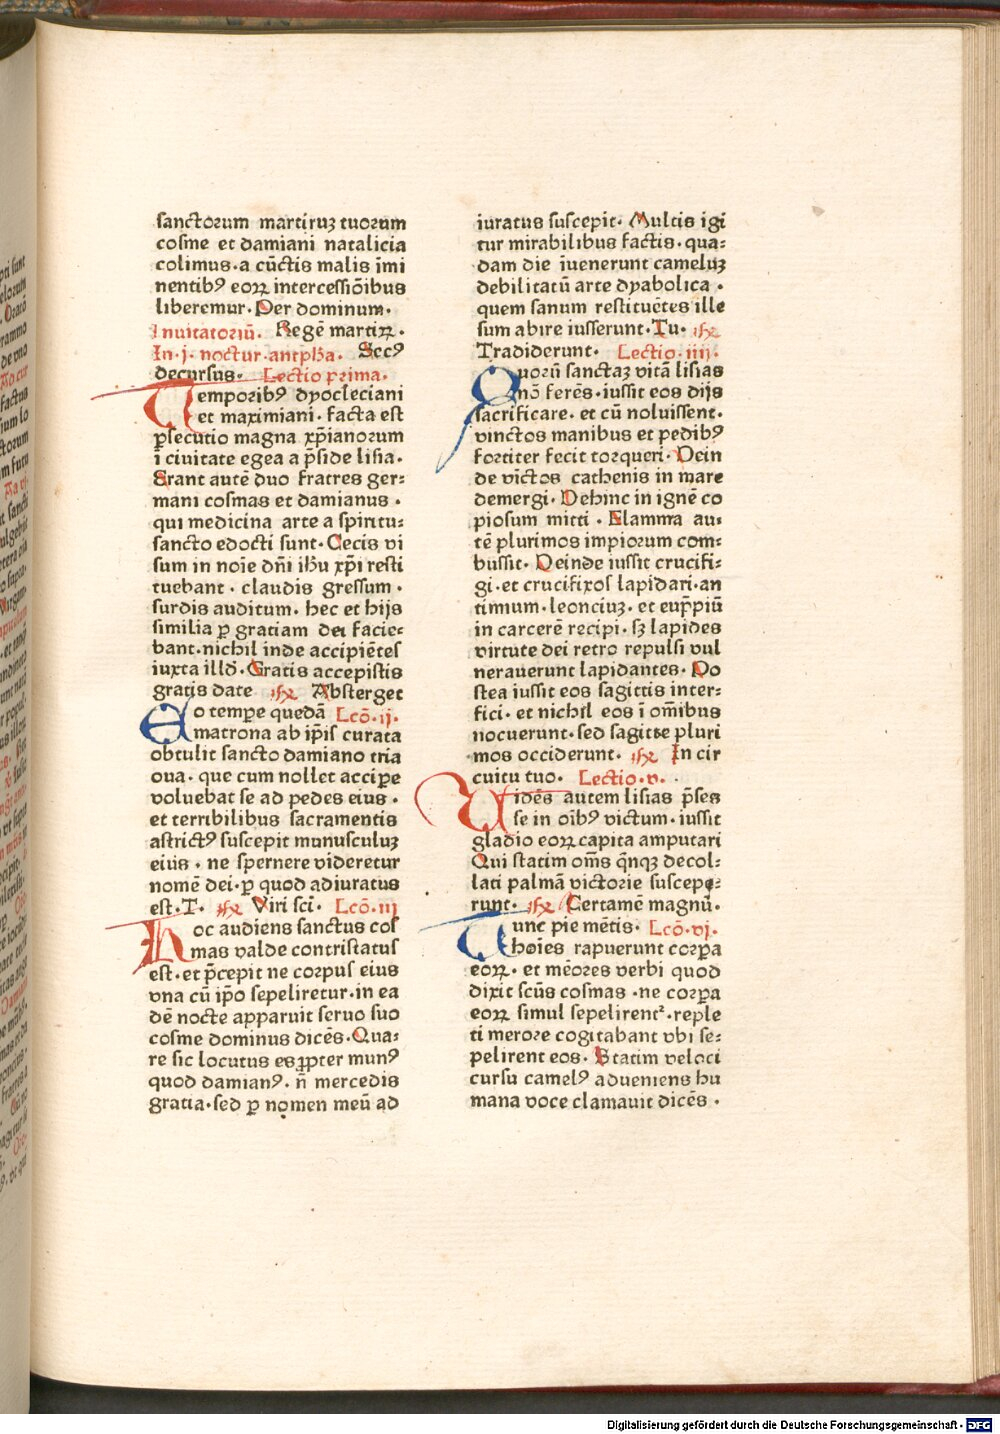 sanctorum martiruꝫ tuorum
cosme et damiani natalicia
colimus · a cūctis malis īmi
nentibꝰ eoꝝ intercessiōibus
liberemur · Per dominum ·
Inuitatoriū · Regē martiꝝ ·
In · j · noctur · antpħa · Seccꝰ
decursus · Lectio prima ·
Temporibꝰ dyocleciani
et maximiani · facta est
ꝑsecutio magna xp̄ianorum
ī ciuitate egea a p̄side lisia ·
Erant autē duo fratres ger⸗
mani cosmas et damianus ·
qui medicina arte a spiritu⸗
sancto edocti sunt · Cecis vi
sum in noīe dn̄i ihū xp̄i resti
tuebant · claudis gressum ·
surdis auditum · hec et hijs
similia ꝑ gratiam dei facie⸗
bant · nichil inde accipiētes
iuxta illđ · Gratis accepistis
gratis date ℟ Absterget
Eo tempore quedā Lcō · ij ·
matrona ab ip̄is curata
obtulit sancto damiano tria
oua · que cum nollet accipe
voluebat se ad pedes eius ·
et terribilibus sacramentis
astrictꝰ suscepit munusculuꝫ
eius · ne spernere videretur
nomē dei · ꝑ quod adiuratus
est · T · ℟ Viri sc̄i · Lcō · iij
Hoc audiens sanctus cos
mas valde contristatus
est · et p̄cepit ne corpus eius
vna cū ip̄o sepeliretur · in ea
dē nocte apparuit seruo suo
cosme dominus dicēs · Qua⸗
re sic locutus es ꝓpter munꝰ
quod damianꝰ · n̄ mercedis
gratia · sed ꝑ nomen meū ad
iuratus suscepit · Multis igi
tur mirabilibus factis · qua⸗
dam die īuenerunt cameluꝫ
debilitatū arte dyabolica ·
quem sanum restituētes ille
sum abire iusserunt · Tu · ℟
Tradiderunt · Lectio · iiij ·
Quorū sanctaꝫ vitā lisias
nō ferēs · iussit eos dijs
sacrificare · et cū noluissent ·
vinctos manibus et pedibꝰ
fortiter fecit torqueri · Dein
de vīctos cathenis in mare
demergi · Dehinc in ignē co
piosum mitti · Flamma au⸗
tē plurimos impiorum com⸗
bussit · Deinde iussit crucifi⸗
gi · et crucifixos lapidari · an
timium · leonciuꝫ · et eup̄piū
in carcerē recipi · sꝫ lapides
virtute dei retro repulsi vul
nerauerunt lapidantes · Po
stea iussit eos sagittis inter⸗
fici · et nichil eos ī om̄ibus
nocuerunt · sed sagitte pluri
mos occiderunt · ℟ In cir
cuitu tuo · Lectio · v ·
Vidēs autem lisias p̄ses
se in oībꝰ victum · iussit
gladio eoꝝ capita amputari
Qui statim om̄s q̄nqꝫ decol⸗
lati palmā victorie suscepe⸗
runt · ℟ Certamē magnū ·
Tunc pie mētis · Lcō · vj ·
hoīes rapuerunt corpora
eoꝝ · et mēores verbi quod
dixit scūs cosmas · ne corpora
eoꝝ simul sepelirent² · reple
ti merore cogitabant vbi se⸗
pelirent eos · Statim veloci
cursu camelꝰ adueniens hu
mana voce clamauit dicēs ·
Digitalisierung gefördert durch die Deutsche Forschungsgemeinschaft · DFG